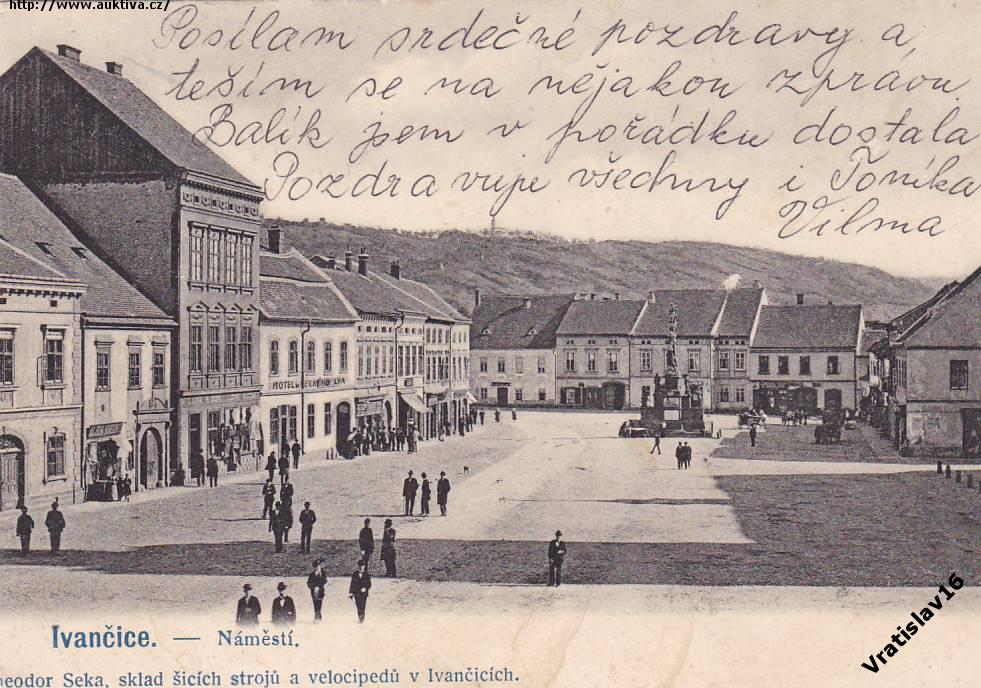 http://www.auktiva.cz/
Posílam srdečné pozdravy a
teším se na nějakou zprávu
Balík jsem v pořádku dostala
Pozdravuje všechny i Toníka
Vilma
HOTEL
Ivančice. — Náměstí.
heodor Seka, sklad šicích strojů a velocipedů v Ivančicích.
Vratislav16